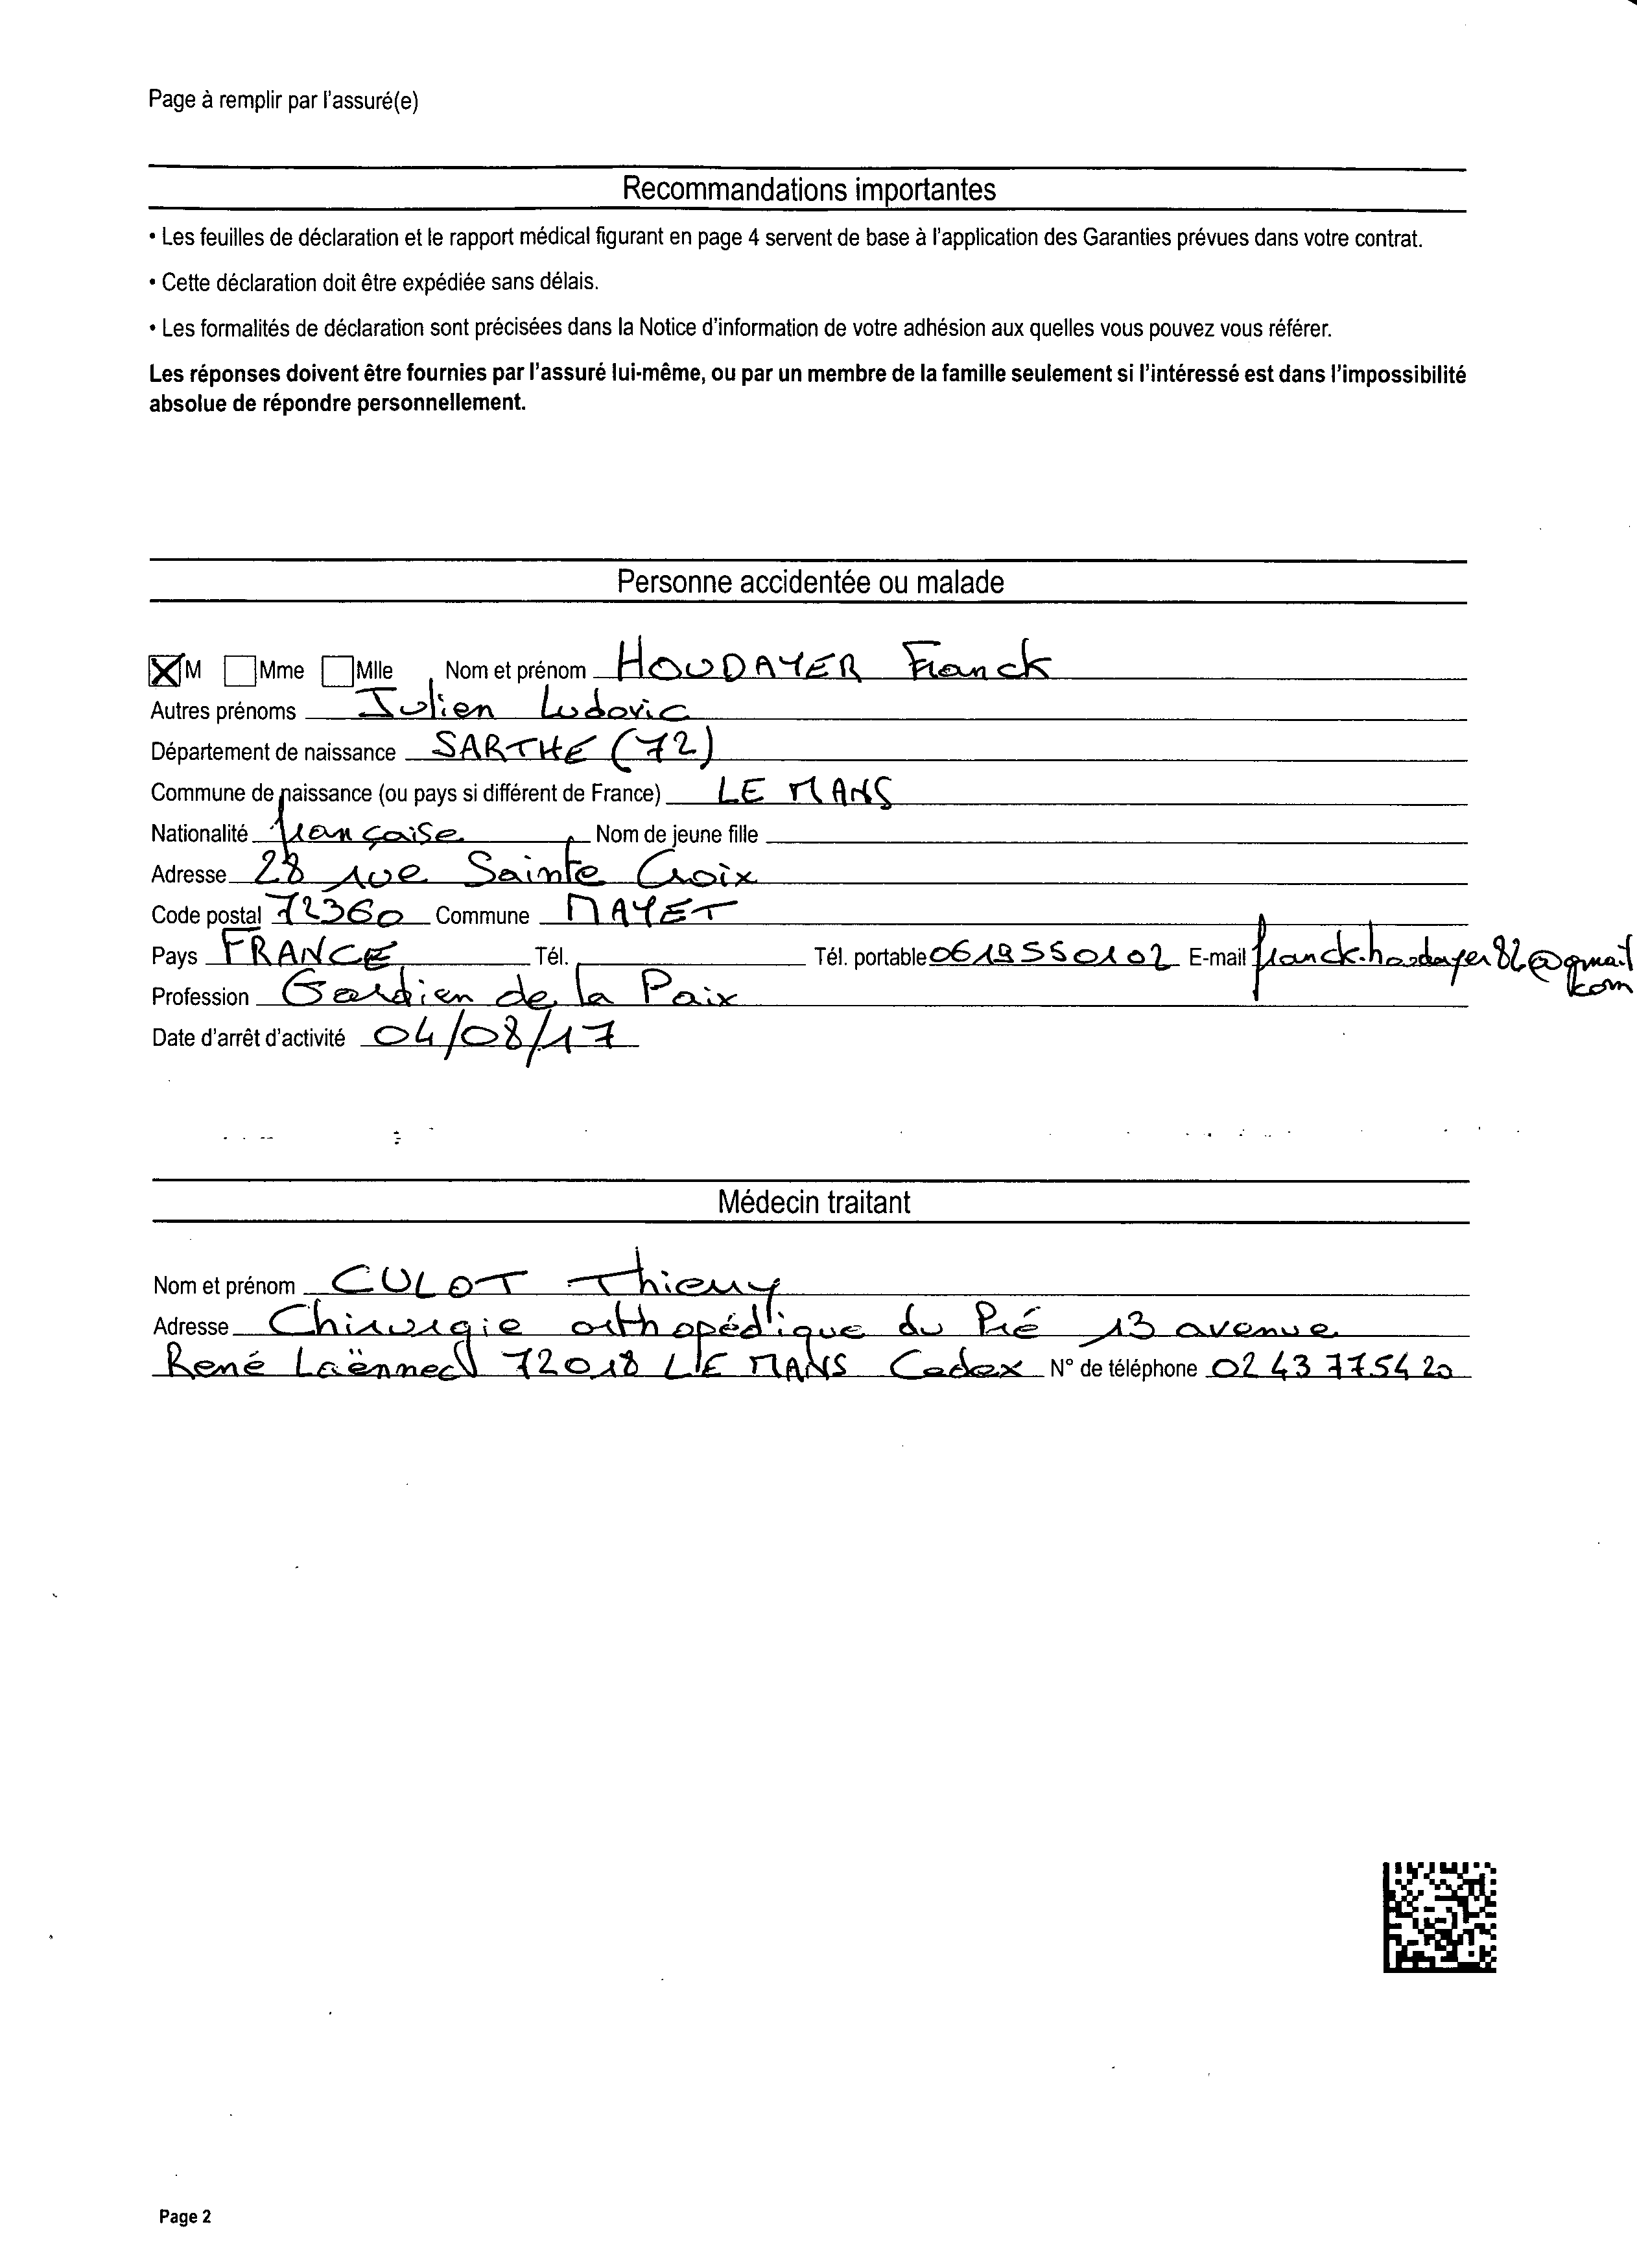 Page à remplir par l'assuré(e)
Recommandations importantes
• Les feuilles de déclaration et le rapport médical figurant en page 4 servent de base à l'application des Garanties prévues dans votre contrat.
• Cette déclaration doit être expédiée sans délais.
• Les formalités de déclaration sont précisées dans la Notice d'information de votre adhésion aux quelles vous pouvez vous référer.
Les réponses doivent être fournies par l'assuré lui-même, ou par un membre de la famille seulement si l'intéressé est dans l'impossibilité
absolue de répondre personnellement.
Personne accidentée ou malade
M Mme Mlle Nom et prénom HOUDAYER Franck
Autres prénoms Julien Ludovic
Département de naissance SARTHE (72)
Commune de naissance (ou pays si différent de France) LE MANS
Nationalité française Nom de jeune fille
Adresse 28 rue Sainte Croix
Code postal 72360 Commune MAYET
Pays FRANCE Tél. Tél. portable 0619550102 E-mail franck.houdayer82@gmail
.com
Profession Gardien de la Paix
Date d'arrêt d'activité 04/08/17
Médecin traitant
Nom et prénom CULOT Thierry
Adresse Chirurgie orthopédique du Pré 13 avenue
René Laënnec 72018 LE MANS Cedex N° de téléphone 02 43 77 54 20
Page 2